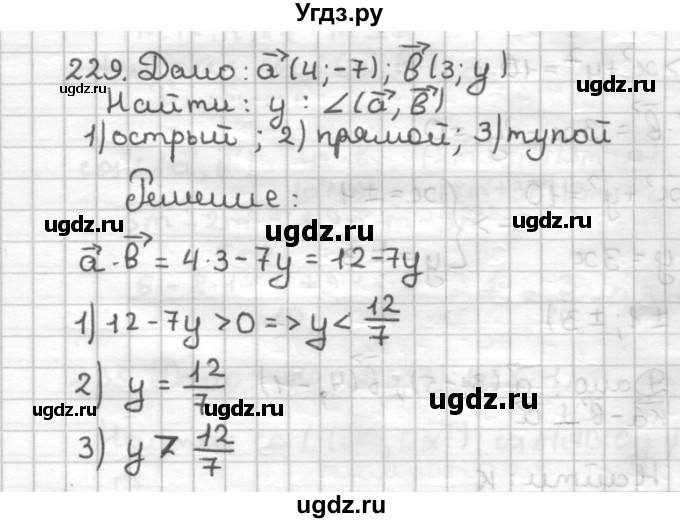 Угдз.ру
229. Дано: a⃗(4;-7); b⃗(3; y)
Найти: y : ∠(a⃗, b⃗)
1) острый ; 2) прямой; 3) тупой
Решение:
ugdz.ru ugdz.ru
ugdz.ru
a⃗ · b⃗ = 4·3 - 7y = 12 - 7y
1) 12 - 7y > 0 => y < 12/7
2) y = 12/7
ugdz.ru ugdz.ru
3) y > 12/7
ugdz.ru
ugdz.ru